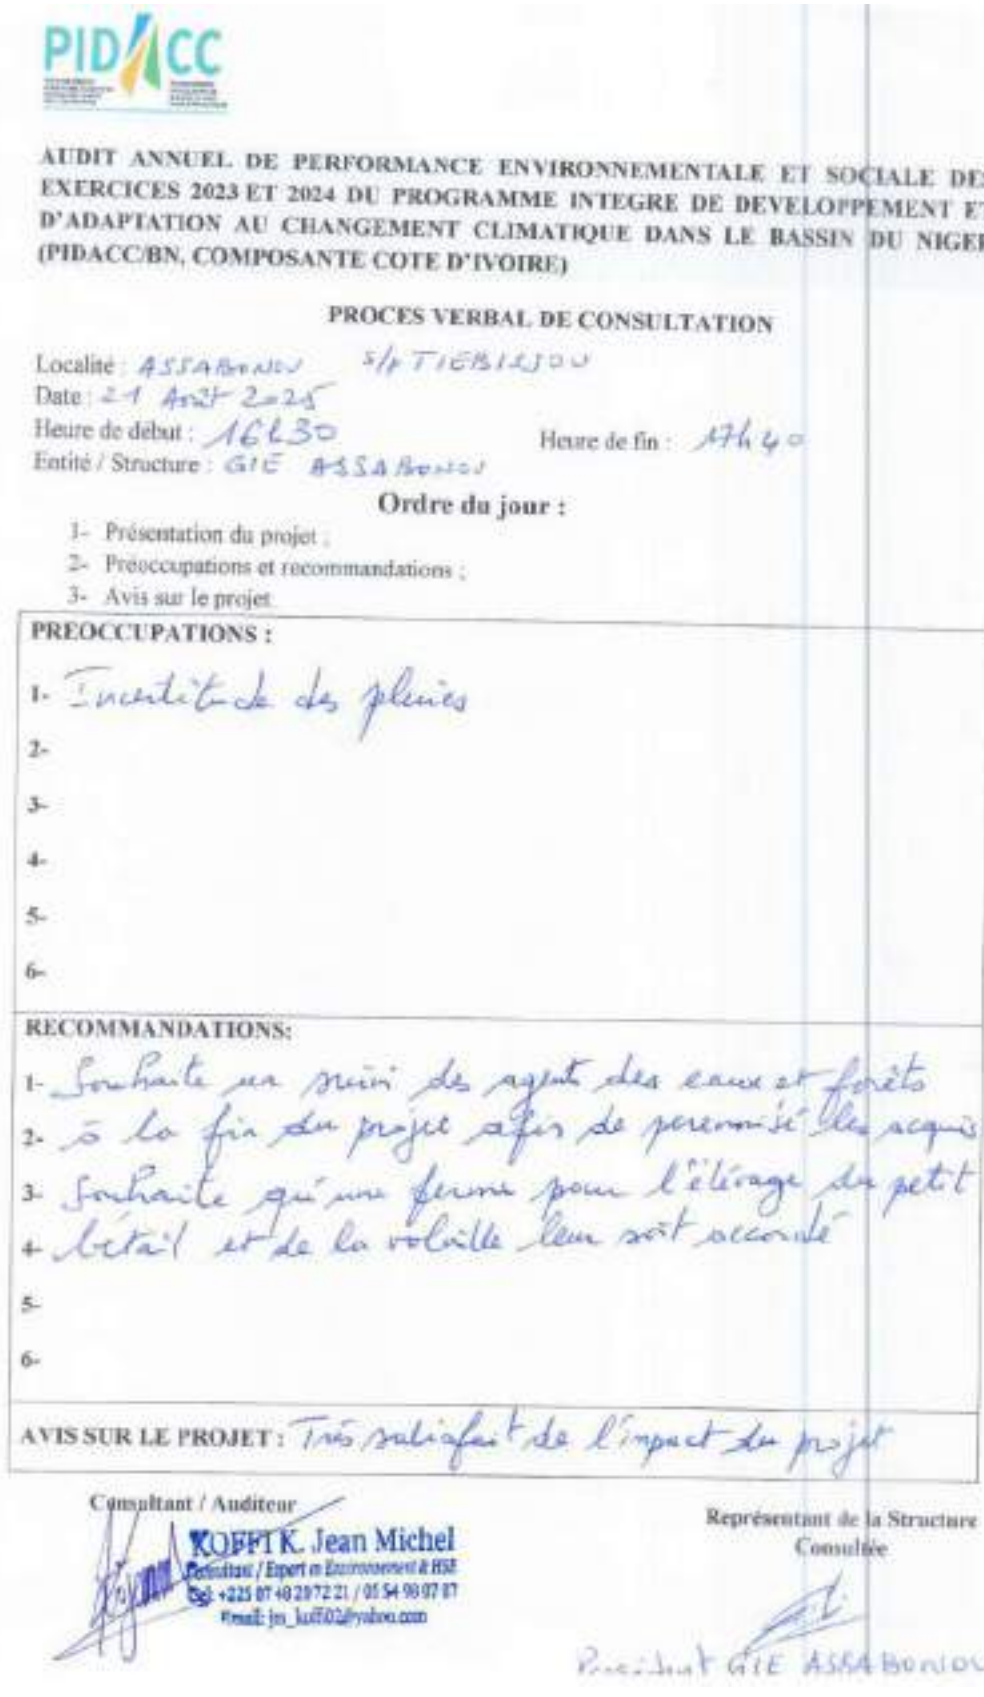 PIDACC
AUDIT ANNUEL DE PERFORMANCE ENVIRONNEMENTALE ET SOCIALE DES
EXERCICES 2023 ET 2024 DU PROGRAMME INTEGRE DE DEVELOPPEMENT ET
D'ADAPTATION AU CHANGEMENT CLIMATIQUE DANS LE BASSIN DU NIGER
(PIDACC/BN, COMPOSANTE COTE D'IVOIRE)
PROCES VERBAL DE CONSULTATION
Localité : ASSABONOU S/P TIEBISSOU
Date : 21 Août 2025
Heure de début : 16h30 Heure de fin : 17h40
Entité / Structure : GIE ASSABONOU
Ordre du jour :
1- Présentation du projet ;
2- Préoccupations et recommandations ;
3- Avis sur le projet
PREOCCUPATIONS :
1- Incertitude des pluies
2-
3-
4-
5-
6-
RECOMMANDATIONS:
1- Souhaite un suivi des agents des eaux et forêts
2- à la fin du projet afin de perennisé les acquis
3- Souhaite qu'une ferme pour l'élévage du petit
4- bétail et de la volaille leur soit accordé
5-
6-
AVIS SUR LE PROJET : Très satisfait de l'impact du projet
Consultant / Auditeur
KOFFI K. Jean Michel
Consultant / Expert en Environnement & HSE
Tel: +225 07 48 20 72 21 / 05 54 98 07 87
Email: jm_koffi02@yahoo.com
Représentant de la Structure
Consultée
President GIE ASSABONOU